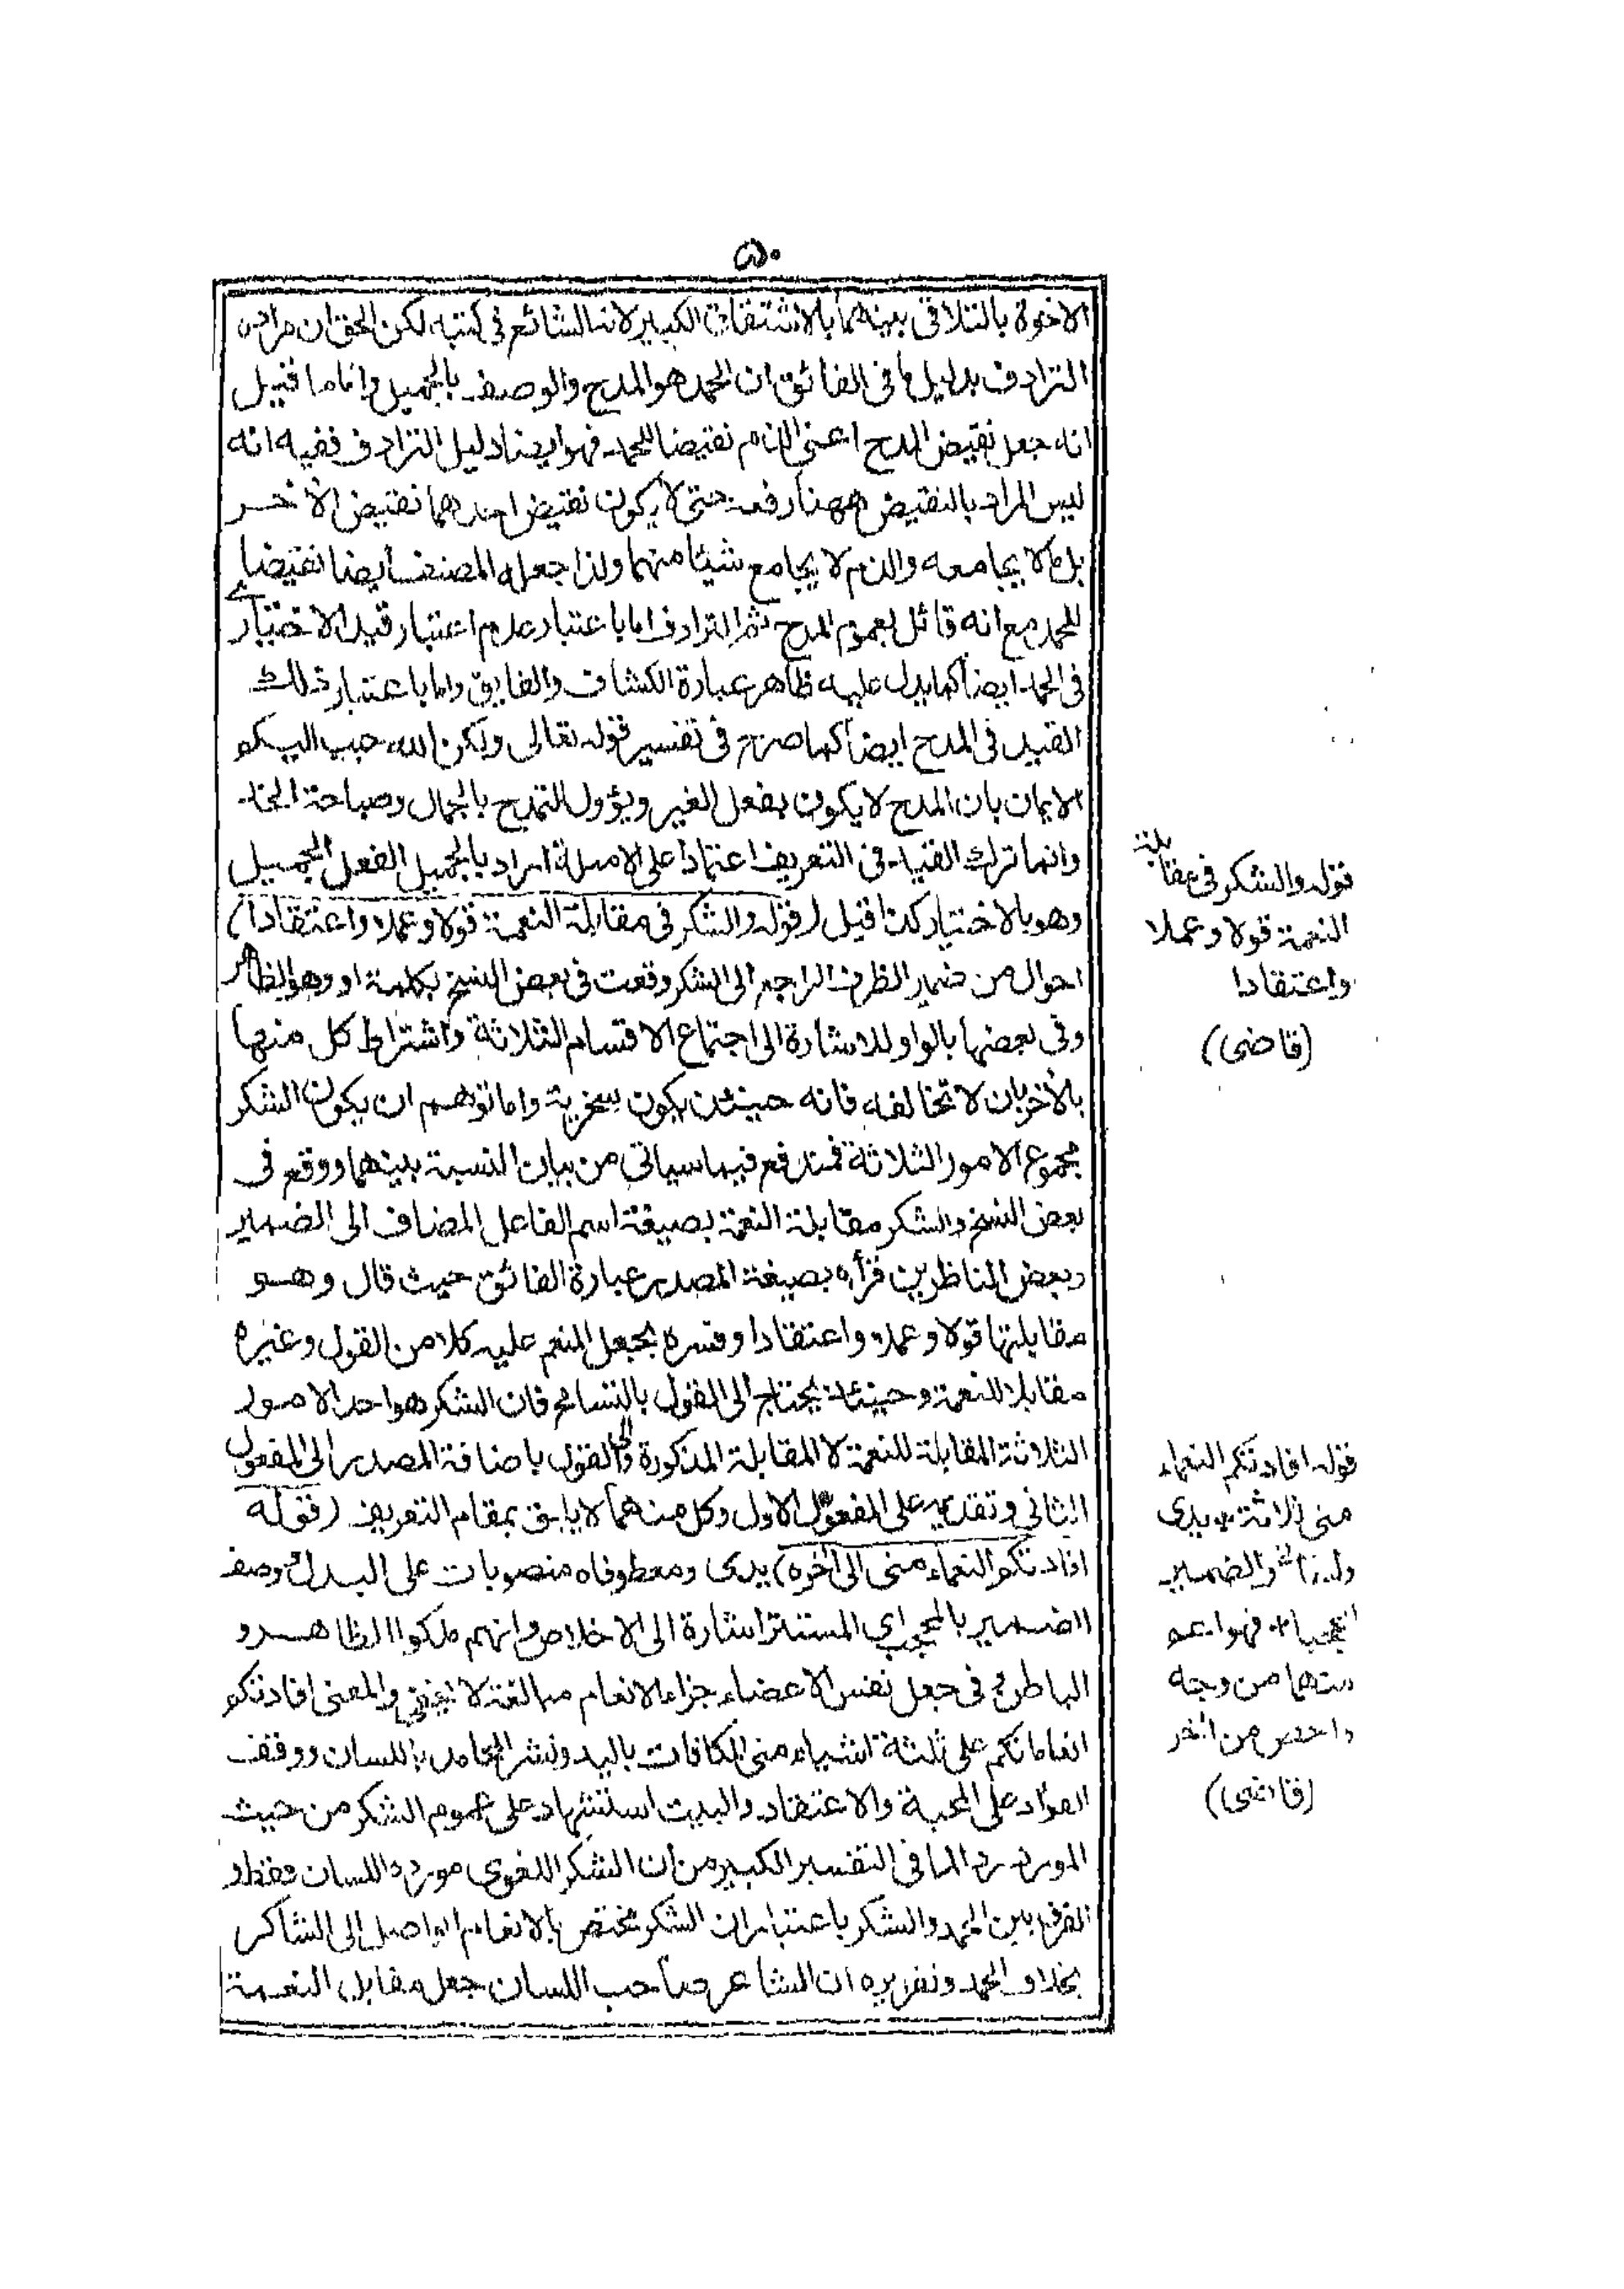 ٥٠
الاخوة بالتلاقى بينهما بالاشتقاق الكبير لانه الشائع فى كتبه لكن الحق ان مراده
الترادف بدليل ما فى الفائق ان الحمد هو المدح والوصف بالجميل واما ما قيل
انه جعل نقيض المدح اعنى الذم نقيضا للحمد فهو ايضا دليل الترادف ففيه انه
ليس المراد بالنقيض ههنا رفعه حتى لا يكون نقيض احدهما نقيض الأخر
بل ما لا يجامعه والذم لا يجامع شيئا منهما ولذا جعله المصنف ايضا نقيضا
للحمد مع انه قائل بعموم المدح ثم الترادف اما باعتبار عدم اعتبار قيد الاختيارى
فى الحمد ايضا كما يدل عليه ظاهر عبارة الكشاف والفايق واما باعتبار ذلك
القيد فى المدح ايضا كما صرح فى تفسير قوله تعالى ولكن الله حبب اليكم
الايمان بان المدح لا يكون بفعل الغير ويؤول التمدح بالجمال وصباحة الخد
وانما ترك القيد فى التعريف اعتمادا على الامثلة اراد بالجميل الفعل الجميل
وهو بالاختيار كذا قيل (قوله والشكر فى مقابلة النعمة قولا وعملا واعتقادا)
احوال من ضمير الظرف الراجع الى الشكر وقعت فى بعض النسخ بكلمة او وهو الظاهر
وفى بعضها بالواو للاشارة الى اجتماع الاقسام الثلاثة واشتراط كل منها
بالأخر بان لا تخالفه فانه حينئذ يكون سخرية واما توهم ان يكون الشكر
مجموع الامور الثلاثة فمندفع فيما سياتى من بيان النسبة بينهما ووقع فى
بعض النسخ والشكر مقابلة النعمة بصيغة اسم الفاعل المضاف الى الضمير
وبعض الناظرين قرأه بصيغة المصدر عبارة الفائق حيث قال وهو
مقابلتها قولا وعملا واعتقادا وفسره بجعل المنعم عليه كلا من القول وغيره
مقابلا للنعمة وحينئذ يحتاج الى القول بالتسامح فان الشكر هو احد الامور
الثلاثة المقابلة للنعمة لا المقابلة المذكورة والى القول باضافة المصدر الى المفعول
الثانى وتقديمه على المفعول الاول وكل منهما لا يليق بمقام التعريف (قوله
افادتكم النعماء منى الى أخره) يدى ومعطوفاه منصوبات على البدل ووصف
الضمير بالمحجب اى المستتر اشارة الى الاخلاص وانهم ملكوا الظاهر و
الباطن وفى جعل نفس الاعضاء جزاء الانعام مبالغة لا تخفى والمعنى افادتكم
انعاماتكم على ثلثة اشياء منى المكافات باليد ونشر المحامد باللسان ووقف
الفواد على المحبة والاعتقاد والبيت استشهاد على عموم الشكر من حيث
المورد رد لما فى التفسير الكبير من ان الشكر اللغوى مورده اللسان فقط و
الفرق بين الحمد والشكر باعتبار ان الشكر مختص بالانعام الواصل الى الشاكر
بخلاف الحمد وتقريره ان الشاعر صاحب اللسان جعل مقابل النعمة
قوله والشكر فى مقابلة
النعمة قولا وعملا
واعتقادا
(قاضى)
قوله افادتكم النعماء
منى ثلاثة * يدى
ولسانى والضمير
المحجبا * فهو اعم
منهما من وجه
واخص من أخر
(قاضى)